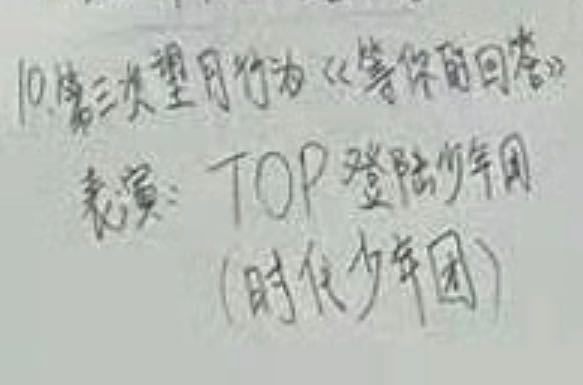 10.第三次望月行为《等你的回答》
表演：TOP 登陆少年团
（时代少年团）